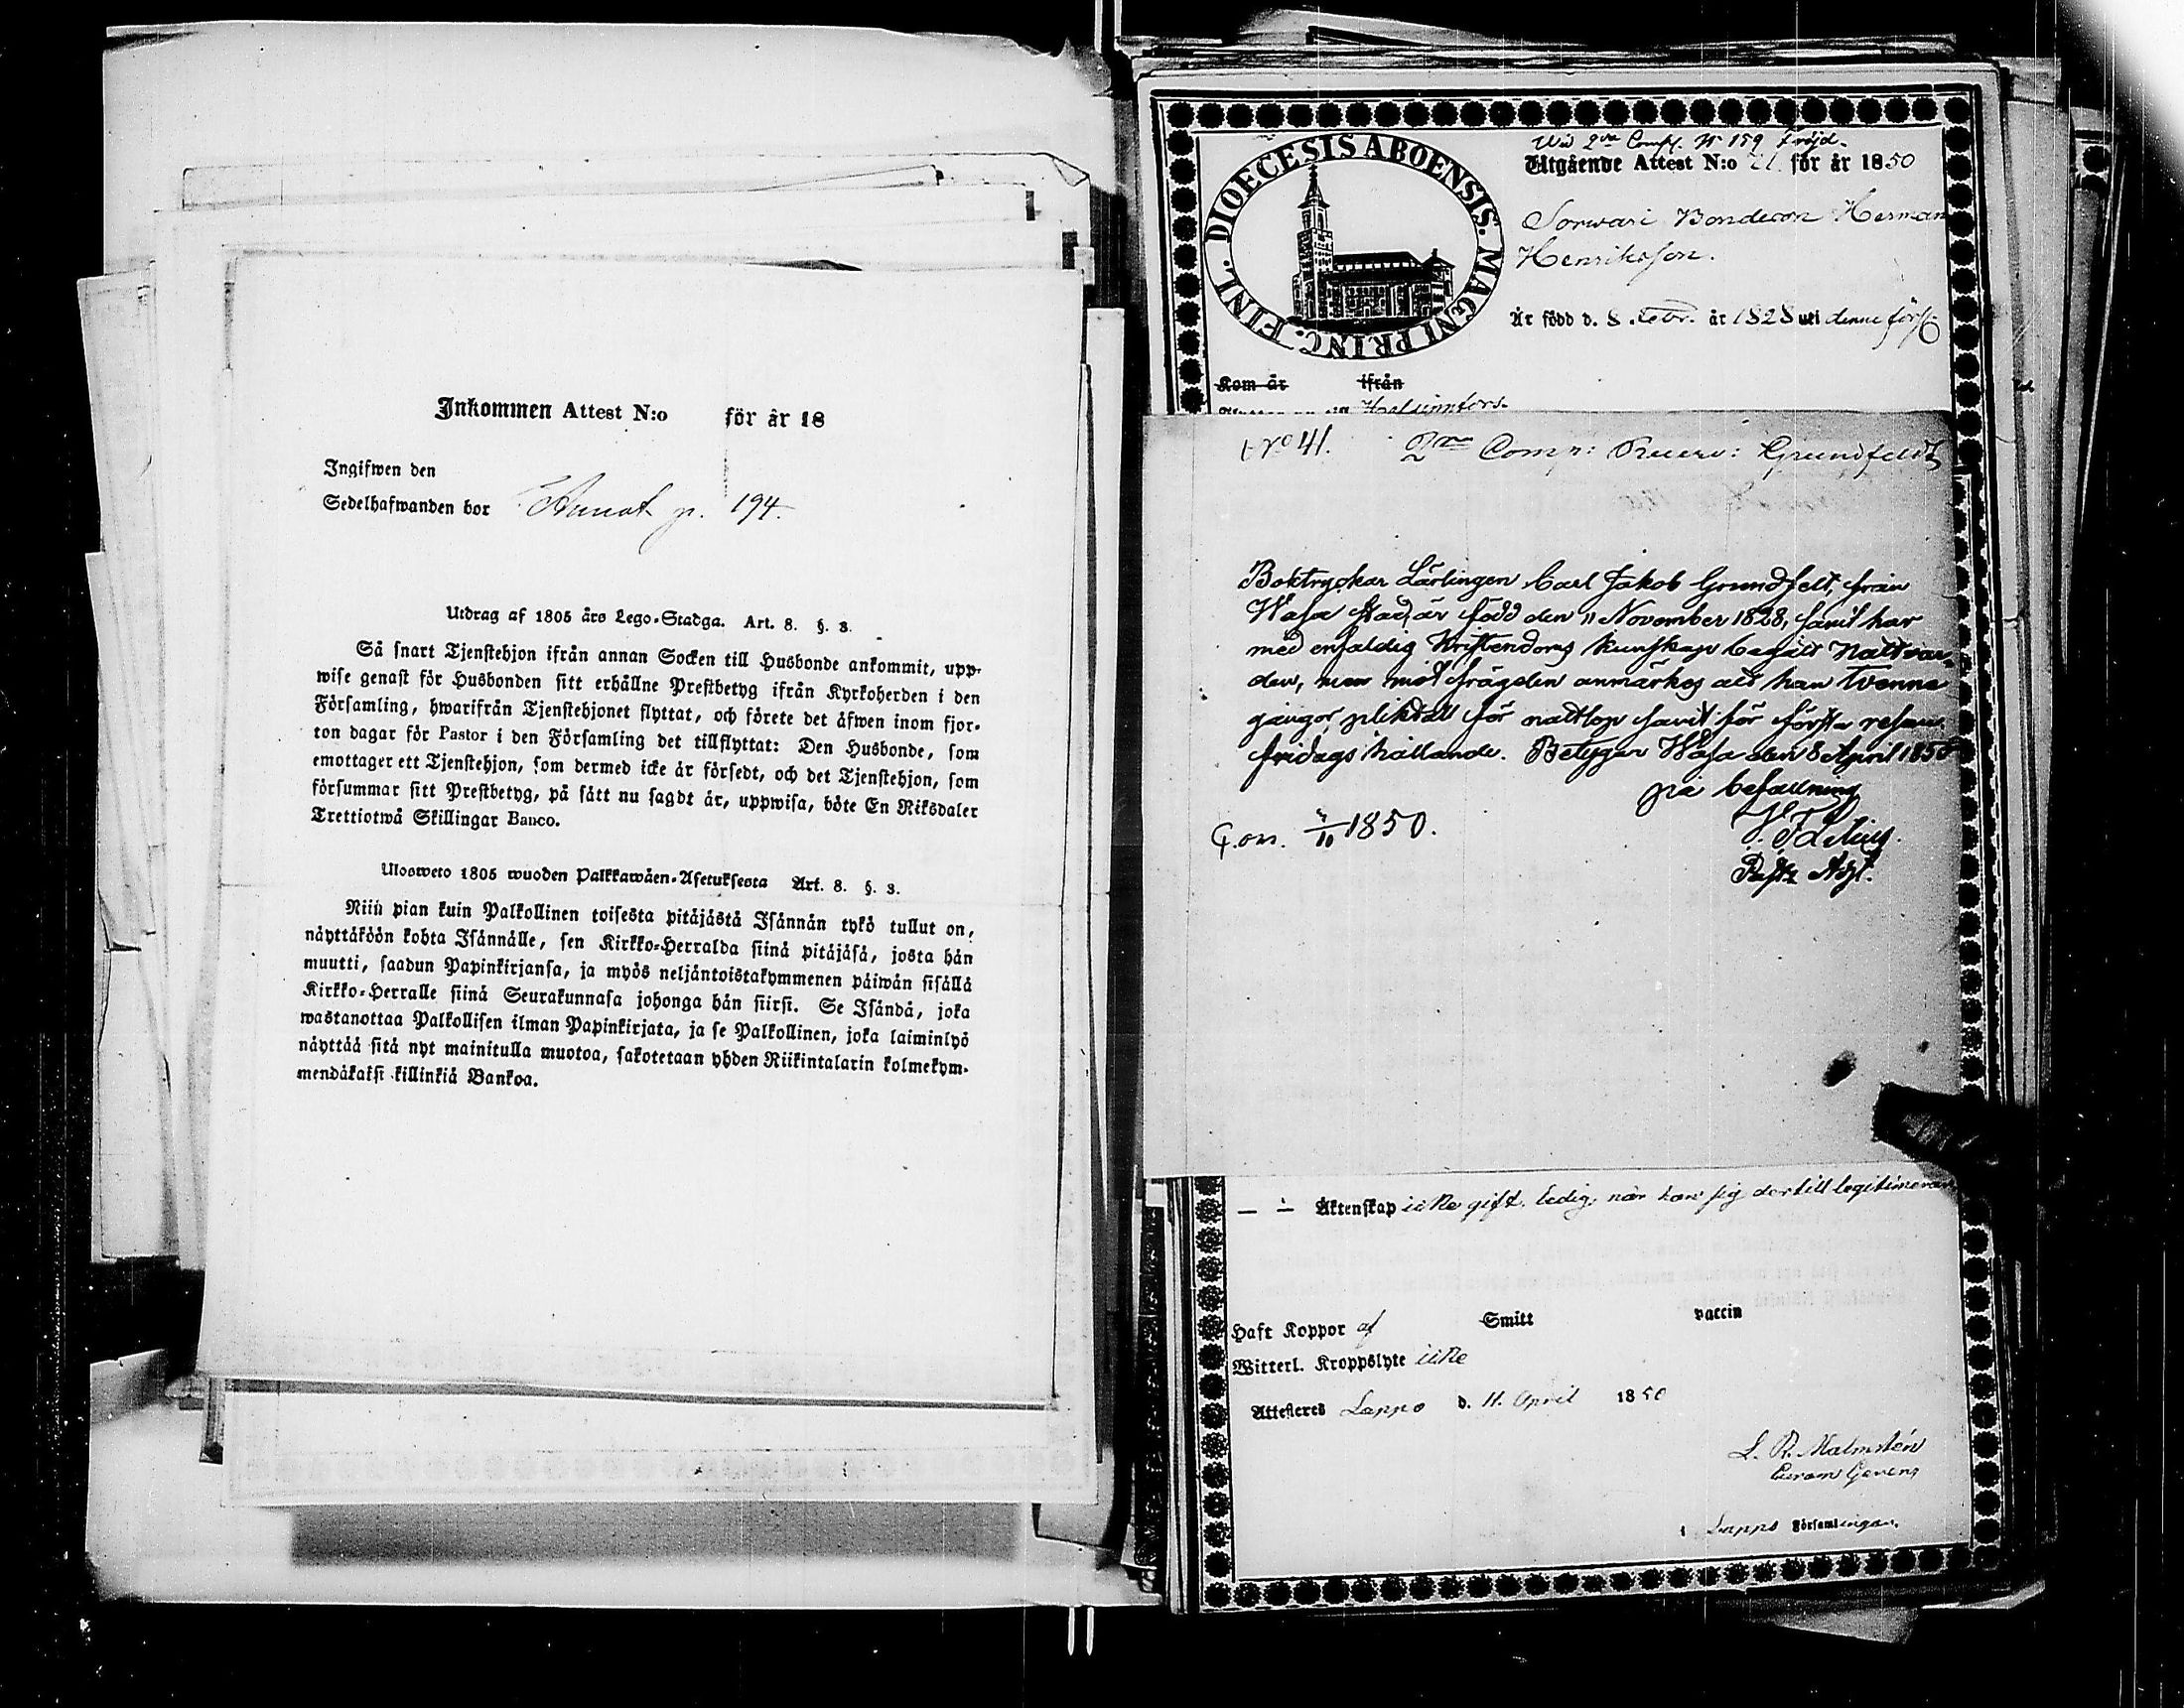 Inkommen Attest N:o för år 18
Ingifwen den
Sedelhafwanden bor p. 194.
Utdrag af 1805 års Lego-Stadga. Art. 8. §. 3.
Så snart Tjenstehjon ifrån annan Socken till Husbonde ankommit, upp-
wise genast för Husbonden sitt erhållne Prestbetyg ifrån Kyrkoherden i den
Församling, hwarifrån Tjenstehjonet flyttat, och förete det äfwen inom fjor-
ton dagar för Pastor i den Församling det tillflyttat: Den Husbonde, som
emottager ett Tjenstehjon, som dermed icke är försedt, och det Tjenstehjon, som
försummar sitt Prestbetyg, på sätt nu sagdt är, uppwisa, böte En Riksdaler
Trettiotwå Skillingar Banco.
Ulosweto 1805 wuoden Palkkawäen-Asetuksesta Art. 8. §. 3.
Niin pian kuin Palkollinen toisesta pitäjästä Isännän tykö tullut on,
näyttäköön kohta Isännälle, sen Kirkko-Herralda siinä pitäjäsä, josta hän
muutti, saadun Papinkirjansa, ja myös neljäntoistakymmenen päiwän sisällä
Kirkko-Herralle siinä Seurakunnasa johonga hän siirsi. Se Isändä, joka
wastanottaa Palkollisen ilman Papinkirjata, ja se Palkollinen, joka laiminlyö
näyttää sitä nyt mainitulla muotoa, sakotetaan yhden Riikintalarin kolmekym-
mendäkaksi killinkiä Bankoa.
DIOECESIS ABOENSIS. MAGNI PRINC. FINL.
Wid 2dra Comp. No 159 Fröjd.
Utgående Attest N:o 21. för år 1850
Sorwari Bondeson Herman
Henriksson.
Är född d. 8 Febr. år 1828 uti denne förs.
Kom år ifrån
Helsingfors.
No 41. 2dra Comp: Grundfeldt
Boktryckar Lärlingen Carl Jakob Grundfelt, från
Wasa stad, är född den 11 November 1828, samt har
med enfaldig Kristendoms kunskap begått Nattvar-
den, men mot frägden anmärkes att han tvenne
gånger pliktat för samt för första
hållande. Betygar Wasa den 8 April 1850
på befallning
Past. Adj.
1850.
Äktenskap icke gift. ledig, när han sig dertill legitimerar
Haft Koppor af Smitt vaccin
Witterl. Kroppslyte icke
Attesteres Lappo d. 11. April 1850
L. R. Malmstén
i Lappo Församlingar.